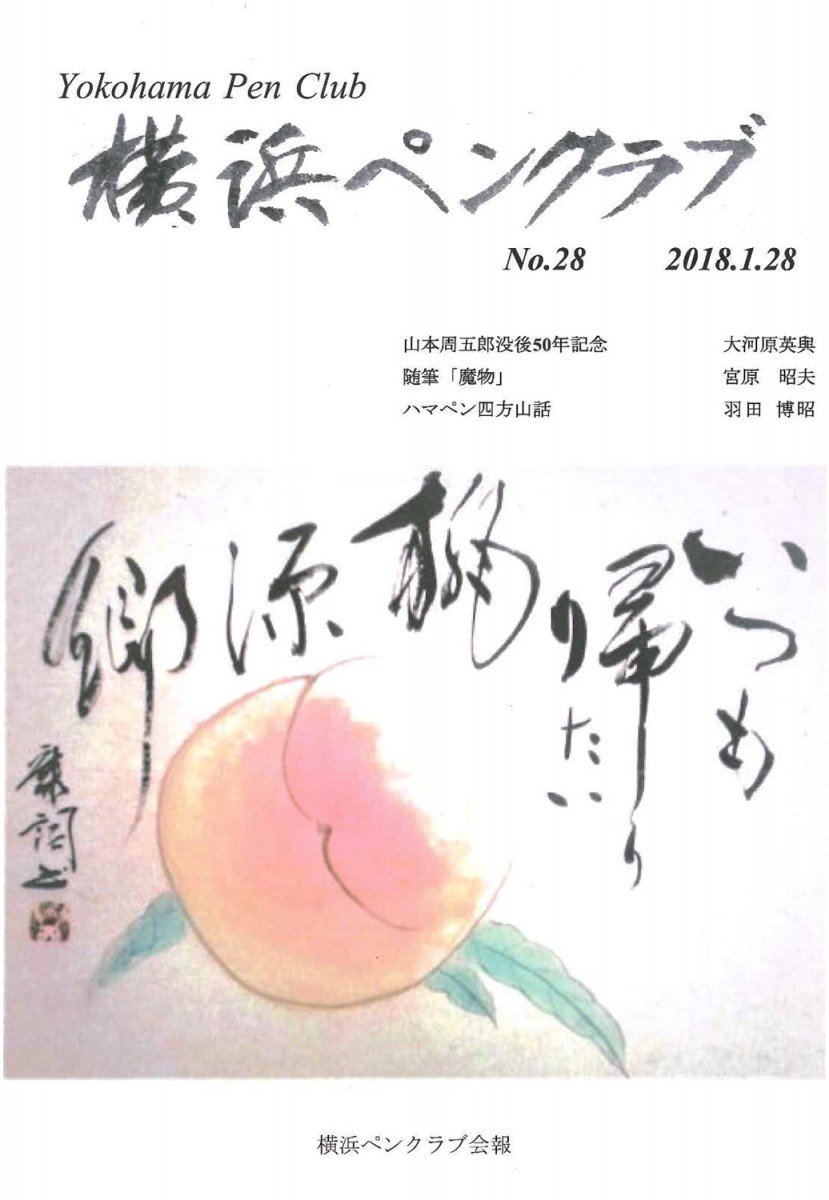 Yokohama Pen Club
横浜ペンクラブ
No.28 2018.1.28
山本周五郎没後50年記念 大河原英與
随筆「魔物」 宮原 昭夫
ハマペン四方山話 羽田 博昭
いつも
帰りたい
桃源郷
横浜ペンクラブ会報